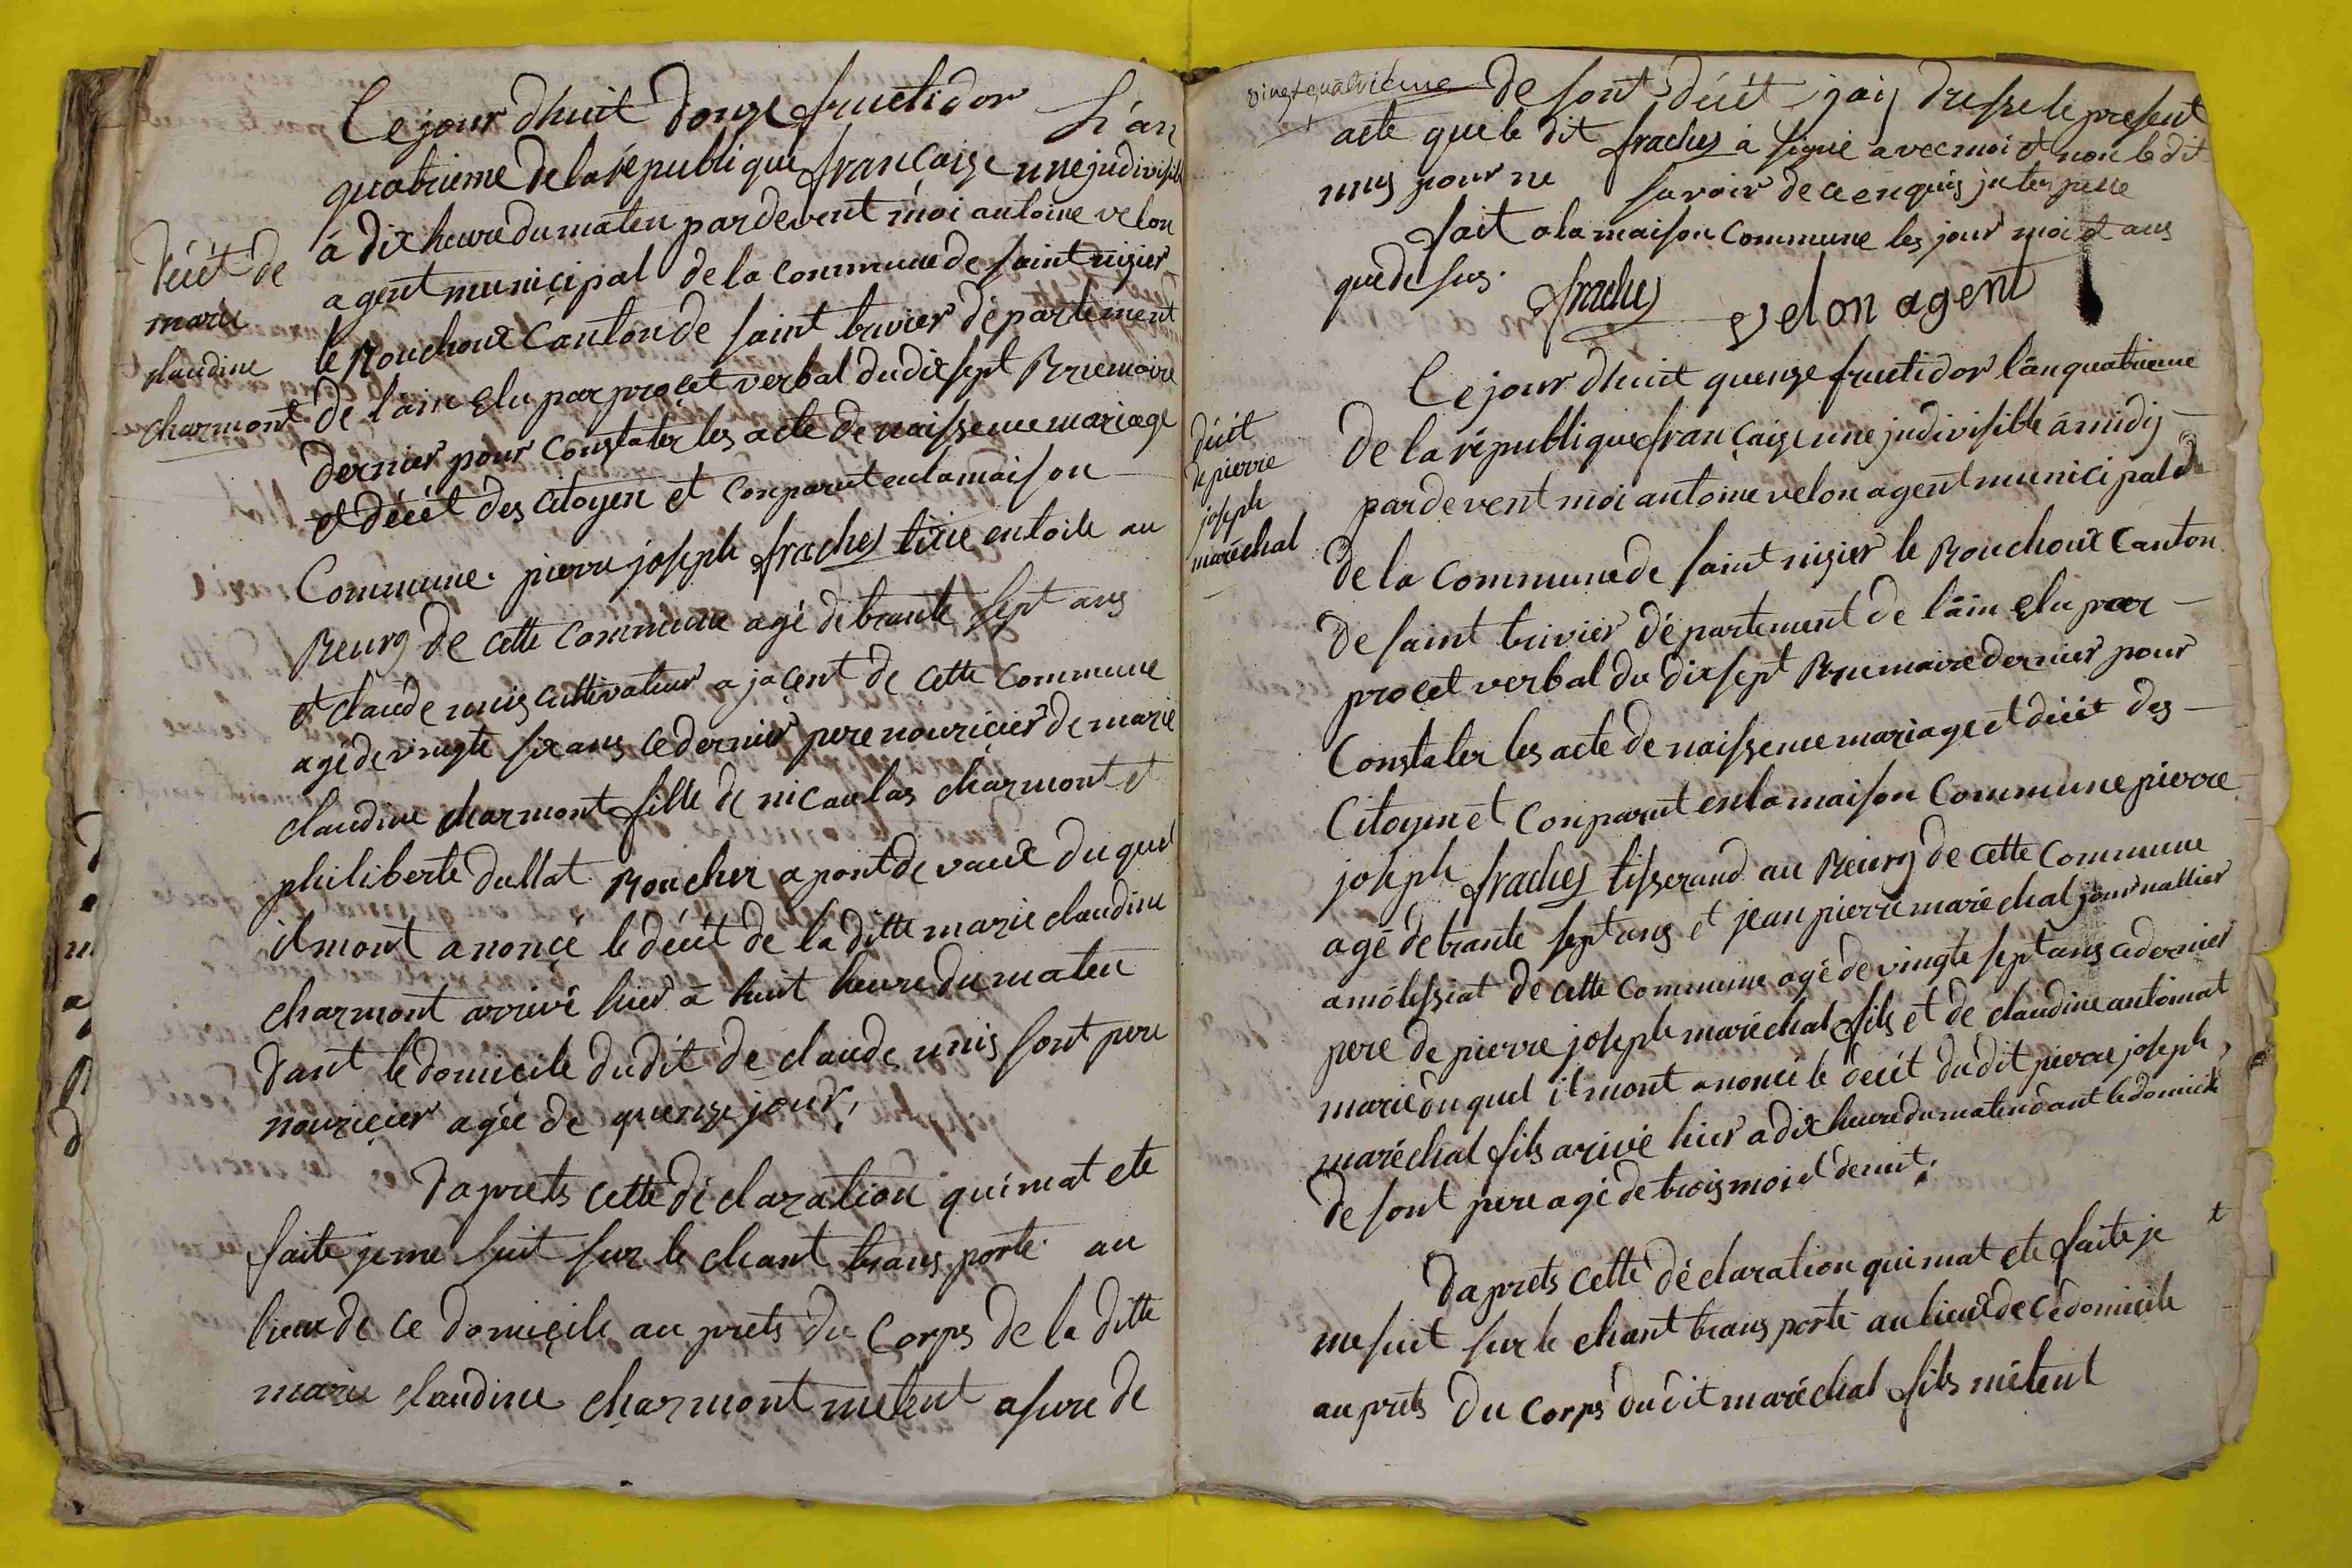 Décét de
marie
claudine
charmont
Ce jour dhuit douze fructidor L'an
quatrieme de la republique francaize une judivisible
à dix heure du maten pardevent moi antoine velon
agent municipal de la commune de saint nizier
le Bouchoux Canton de saint trivier département
de l'ain elu par procet verbal du dix sept Brumaire
dernier pour Constater les acte de naissence mariage
et décét des citoyen et Conparut en la maison
Commune. pierre joseph fraches tixie en toile au
Beurg de cette commune agé de trante sept ans
et claude unis cultivateur a jacent de cette commune
agé de vingte six ans ce dernier pere nouricier de marie
claudine charmont fille de nicaulas charmont et
philiberte dullat Boucher a pont de vaux du quel
il mont anoncé le décét de la ditte marie claudine
charmont arrivé hier à huit heure du maten
dant le domicile dudit de claude unis sont pere
nouricier agée de quenze jour,
Daprets cette déclaration qui mat ete
faite je me suit sur le chant trans porté au
lieux de ce domicile au prets du Corps de la ditte
marie claudine charmont métent asure de
vingt quatrieme de sont décét jaij dresse le present
acte que le dit fraches à signé avec moi et non le dit
unis pour ne savoir de ce enquis jnterpelle
fait a la maison Commune les jour moi et ans
que de sus.
fraches velon agent
décét
de pierre
joseph
maréchal
Ce jour dhuit quenze fructidor l'an quatrieme
De la république française une judivisible à midij
pardevent moi antoine velon agent municipal d
De la Commune de saint nizier le Bouchoux Canton
De saint trivier département de l'ain elu par
procet verbal du dix sept Brumaire dernier pour
Constater les acte de naissence mariage et décét des
Citoyen et Conparut en la maison Commune pierre
joseph fraches tisserand au Beurg de cette Commune
agé de trante sept ans et jean pierre maréchal journallier
a molessiat de cette commune agé de vingte sept ans ce dernier
pere de pierre joseph maréchal fils et de claudine antoinat
marié du quel il mont anoncé le décét dudit pierre joseph
maréchal fils arivé hier a dix heure du maten dant le domicile
de sont pere agé de trois moi et demit;
Daprets cette déclaration qui mat ete faite je
me suit sur le chant trans porté au lieux de ce domicile
au prets du Corps dudit maréchal fils métent